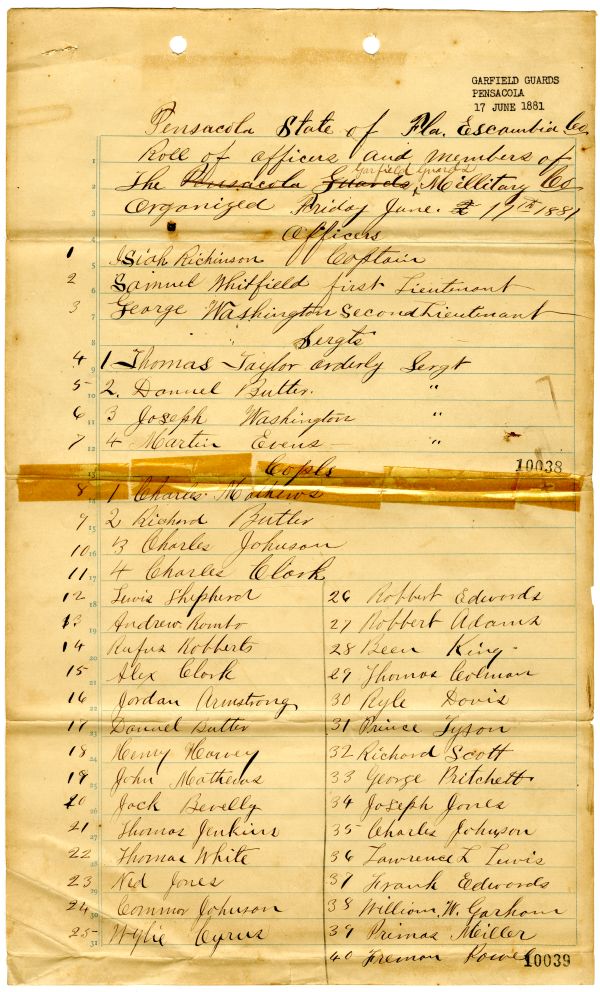 GARFIELD GUARDS
PENSACOLA
17 JUNE 1881
Pensacola State of Fla. Escambia Co
Roll of officers and members of
Garfield Guards
The Pensacola Guards, Millitary Co
Organized Friday June. 17th 1881
Officers
1 Isiah Richinson Captain
2 Samuel Whitfield first Lieutenant
3 George Washington Second Lieutenant
Sergts
4 1 Thomas Taylor orderly Sergt
5 2. Danuel Butter. "
6 3 Joseph Washington "
7 4 Martin Evens "
Copls
10038
8 1 Charles Mathews
9 2 Richard Butler
10 3 Charles Johnson
11 4 Charles Clark
12 Lewis Shepherd
13 Andrew Rombo
14 Rufus Robberts
15 Alex Clark
16 Jordan Armstrong
17 Danuel Butter
18 Henry Harvey
19 John Mathews
20 Jack Bevelly
21 Thomas Jenkins
22 Thomas White
23 Ned Jones
24 Commor Johnson
25 Wylie Cyrus
26 Robbert Edwards
27 Robbert Adams
28 Been King
29 Thomas Colman
30 Ryle Davis
31 Prince Tyson
32 Richard Scott
33 George Pritchett
34 Joseph Jones
35 Charles Johnson
36 Lawrence L Lewis
37 Frank Edwards
38 William W. Garham
39 Primas Miller
40 Freman Powe
10039